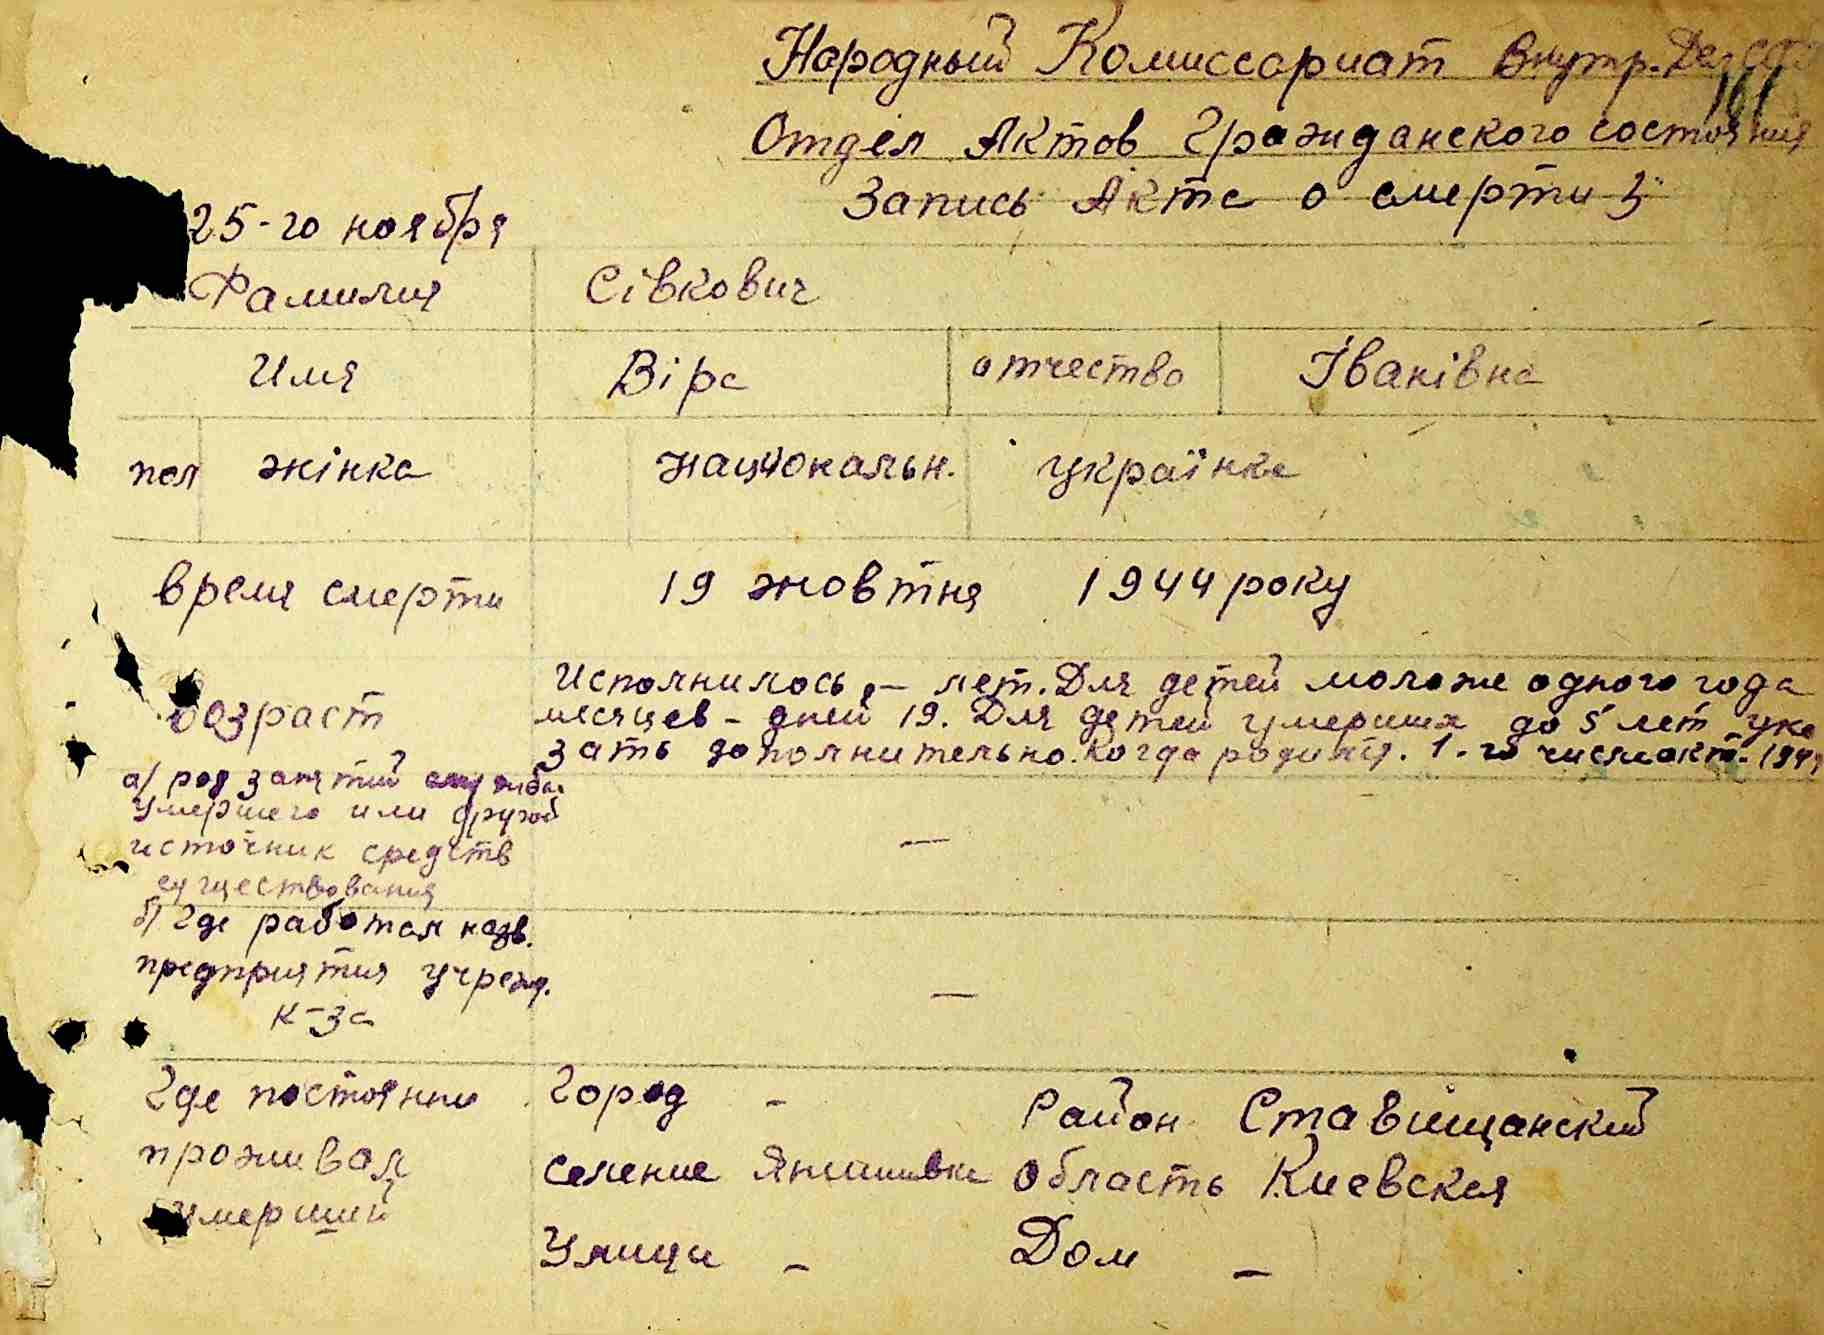 Народный Комиссариат Внутр. Дел СССР
161
Отдел Актов Гражданского состояния
Запись Акта о смерти 3
25-го ноября
Фамилия Сівкович
Имя Віра отчество Іванівна
пол жінка национальн. українка
время смерти 19 жовтня 1944 року
возраст Исполнилось, — лет. Для детей моложе одного года
месяцев – дней 19. Для детей умерших до 5 лет ука
зать дополнительно. когда родился. 1-го числа окт. 1944
а) род занятий службы
умершего или другой
источник средств —
существования
б) Где работал назв.
предприятия учрежд. —
к-за
Где постоянно Город – Район Ставищанский
проживал селение Янишивка область Киевская
умерший Улица – Дом –